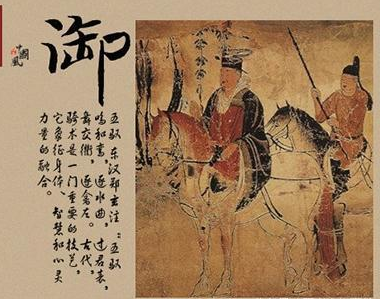 御
中國風
五驭 东汉郑玄注：五驭
鸣和鸾，逐水曲，过君表，
舞交衢，逐禽左。古代，
骑术是一门重要的技艺，
它象征身体、智慧和心灵
力量的融合。